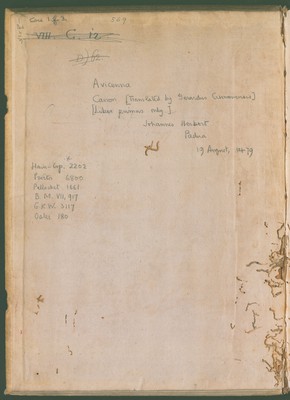 Case 1.f.2
569
VIII. C. 12
Avicenna
Canon [Translated by Gerardus Cremonensis]
[Liber primus only.]
Johannes Herbort
Padua
19 August, 1479
Hain-Cop. 2202
Proctor 6800
Pellechet 1661
B.M. VII, 917
G.K.W. 3119
Oates 180